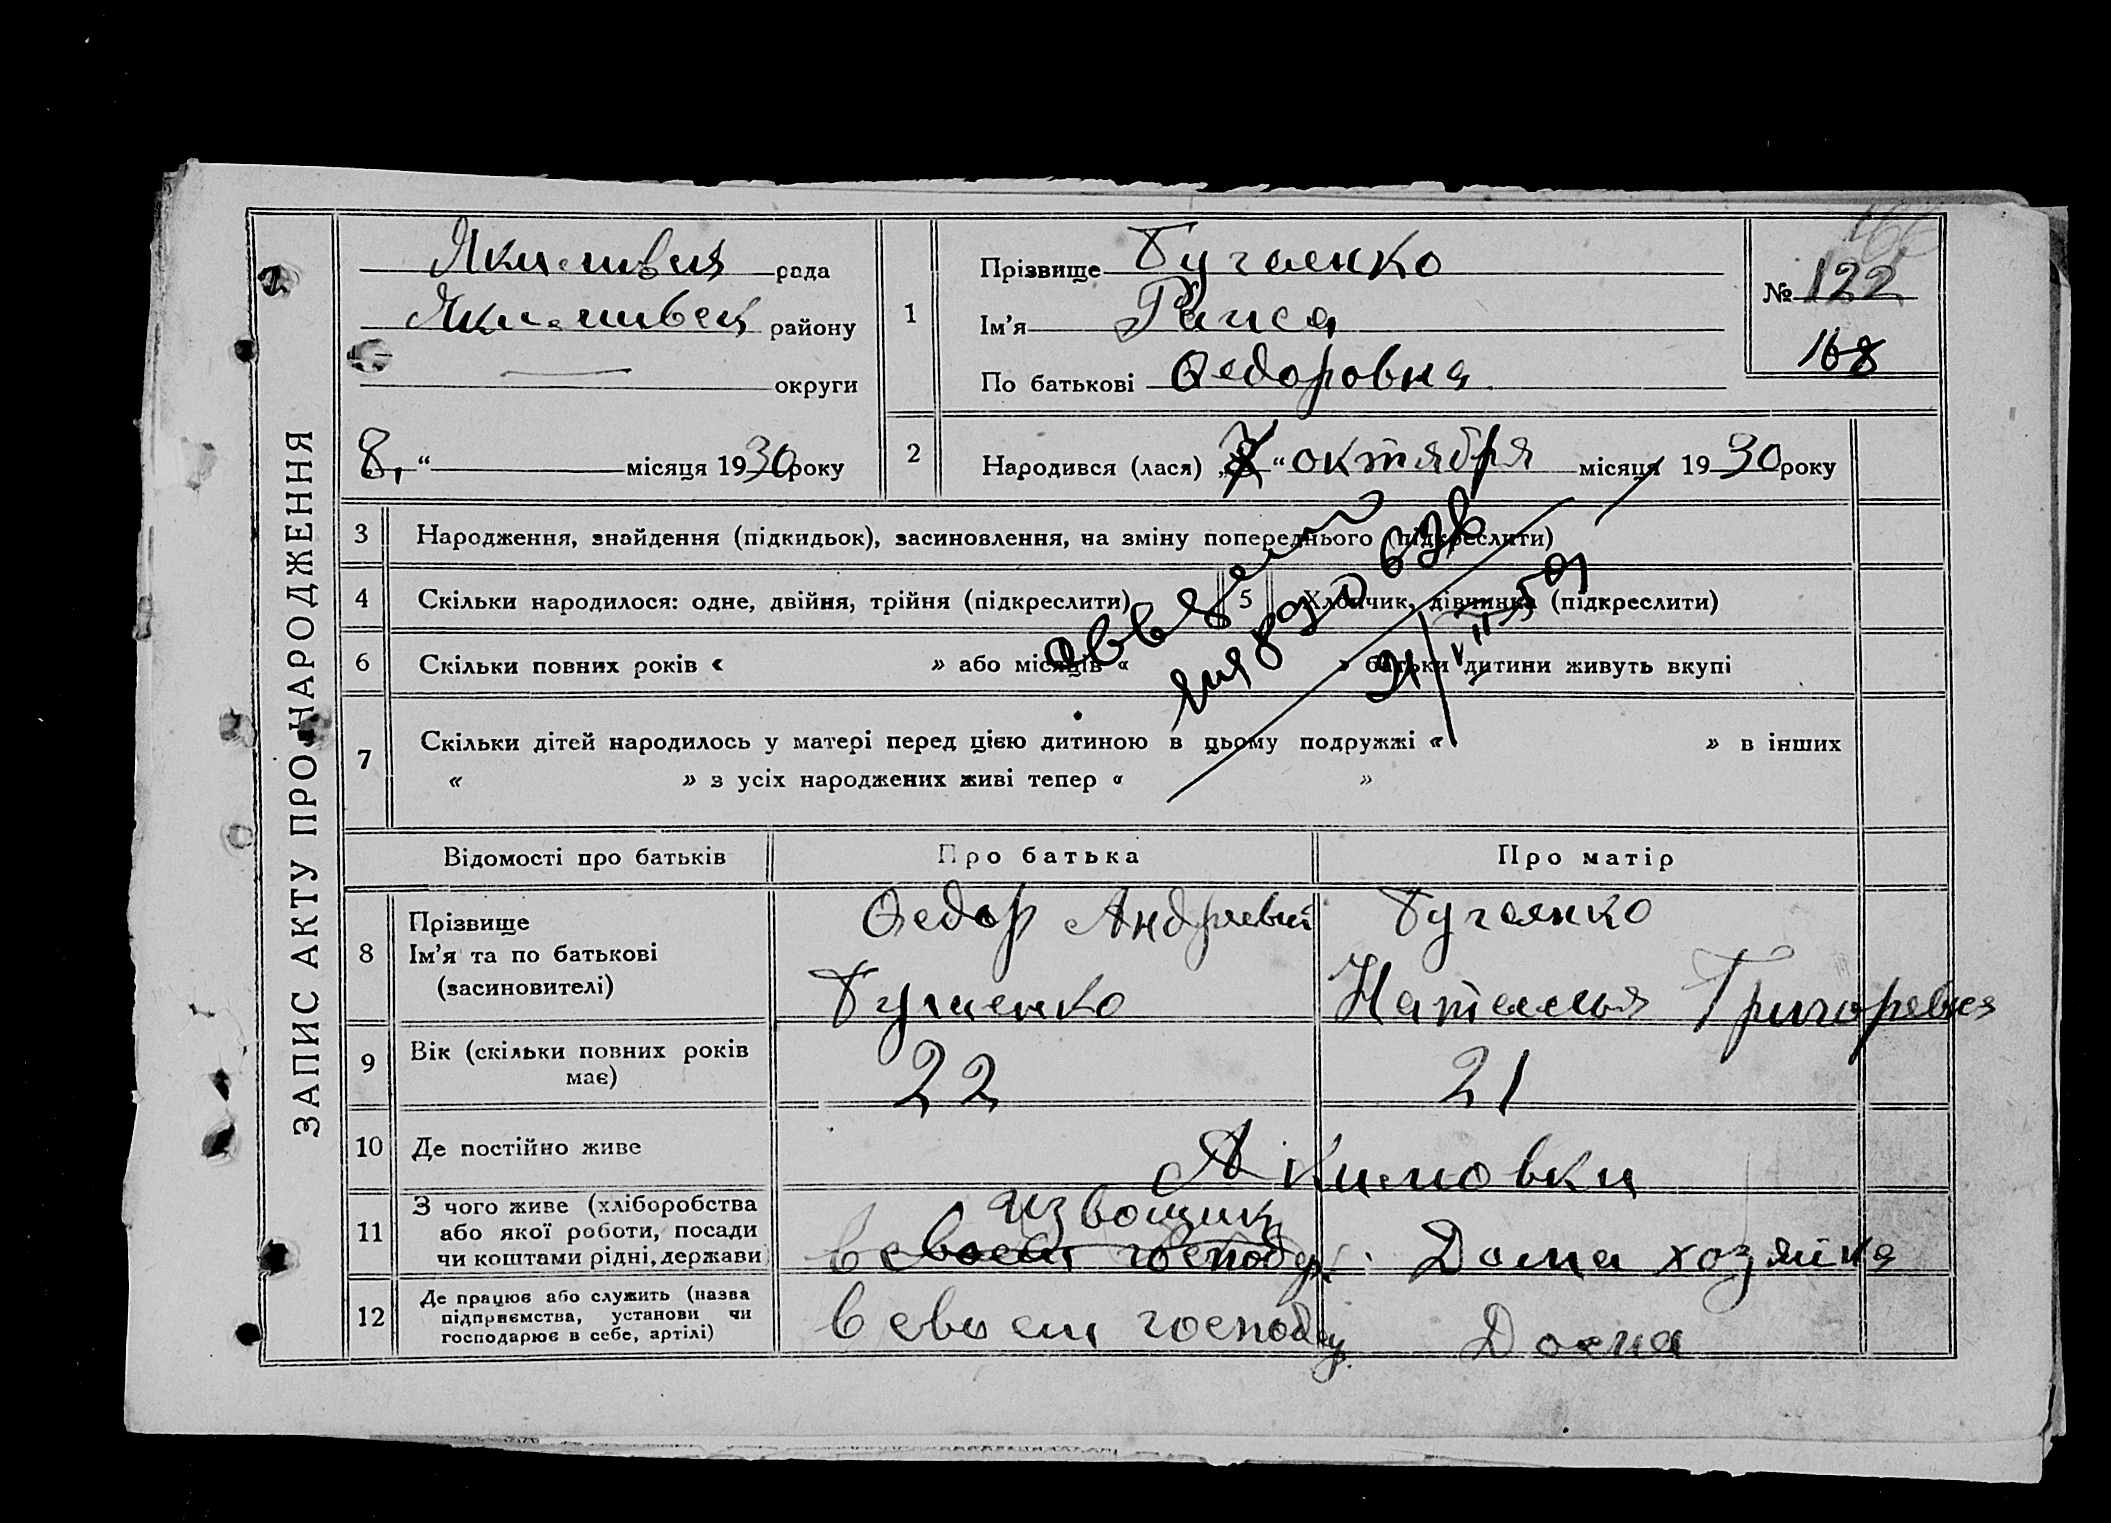 ЗАПИС АКТУ ПРО НАРОДЖЕННЯ
Якимовия рада
Якимовец району
округи
8, “ місяця 1930 року
1
Прізвище Бугаенко
Ім’я Раиса
По батькові Федоровна
№ 122
168
2
Народився (лася) „ “ октября місяця 1930 року
3 Народження, знайдення (підкидьок), засиновлення, на зміну попереднього (підкреслити)
4 Скільки народилося: одне, двійня, трійня (підкреслити)
5 Хлопчик, дівчинка (підкреслити)
6 Скільки повних років « » або місяців « » батьки дитини живуть вкупі
7 Скільки дітей народилось у матері перед цією дитиною в цьому подружжі « » в інших
« » з усіх народжених живі тепер « »
Відомості про батьків Про батька Про матір
8 Прізвище
Ім’я та по батькові
(засиновителі)
Федор Андреевич
Бугаенко
Бугаенко
Наталья Григоревна
9 Вік (скільки повних років
має)
22 21
10 Де постійно живе
Акимовки
11 З чого живе (хліборобства
або якої роботи, посади
чи коштами рідні, держави
извощик
в своем господар.
Дома хозяйка
12 Де працює або служить (назва
підприємства, установи чи
господарює в себе, артілі)
в своем господар.
Дома